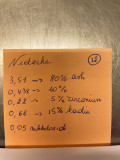 12
3,51 → 80% ash
0,438 → 10%
0,22 → 5% zirconium
0,66 → 15% kaolin
0,05